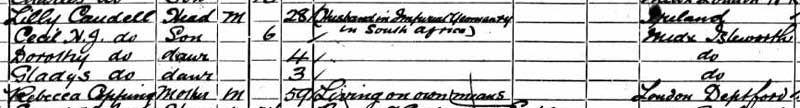 Lilly Caudell Head M 28 (Husband in Imperial Yeomanry Ireland
Cecil H.J. do Son 6 in South Africa) Midx Isleworth
Dorothy do dawr 4 do
Gladys do dawr 3 do
Rebecca Mother M 59 Living on own means London Deptford